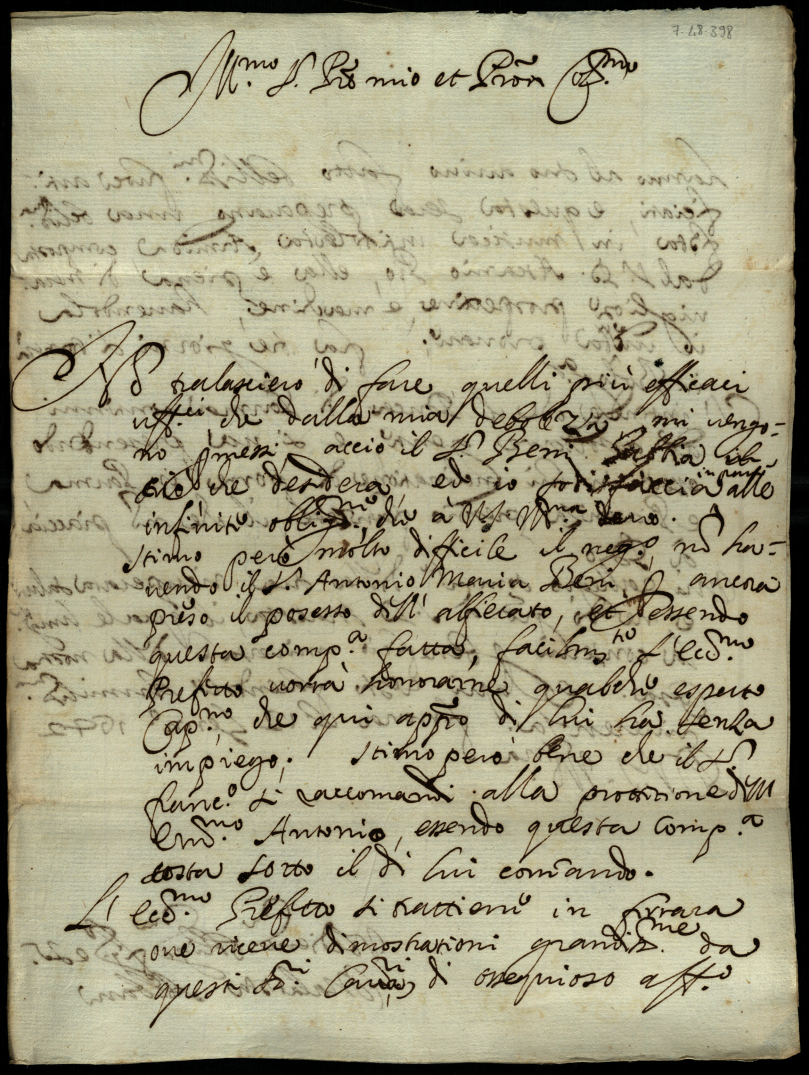 7-48-398
Ill.mo S.r Prõn mio et Prõn Col.mo
Nõ tralasciero di fare quelli più efficaci
uffici, che dalla mia debolezza mi vengo-
no pmessi, accio il S.r Beni
ciò che desidera, ed io sodisfaccia in parte alle
infinite oblig.ni, che à V.S. Ill.ma devo.
stimo però molto difficile il neg.o, nõ ha-
vendo il S.r Antonio Maria Beni p ancora
preso il posesso dell' alfierato, et essendo
questa comp.a fatta, facilm.te S. Ecc.mo
Prefetto vorrà honorarne qualche esperto
Cap.no, che qui appr̃o di lui ha senza
impiego. stimo però bene che il S.r
Franc.o si raccomandi alla protettione dell
Em.mo Antonio, essendo questa comp.a
costa sotto il di lui comando.
L' Ecc.mo Prefetto si trattiene in Ferrara
ove riceve dimostrationi grandis.me da
questi S.ri Cava.ri, di ossequioso aff.o